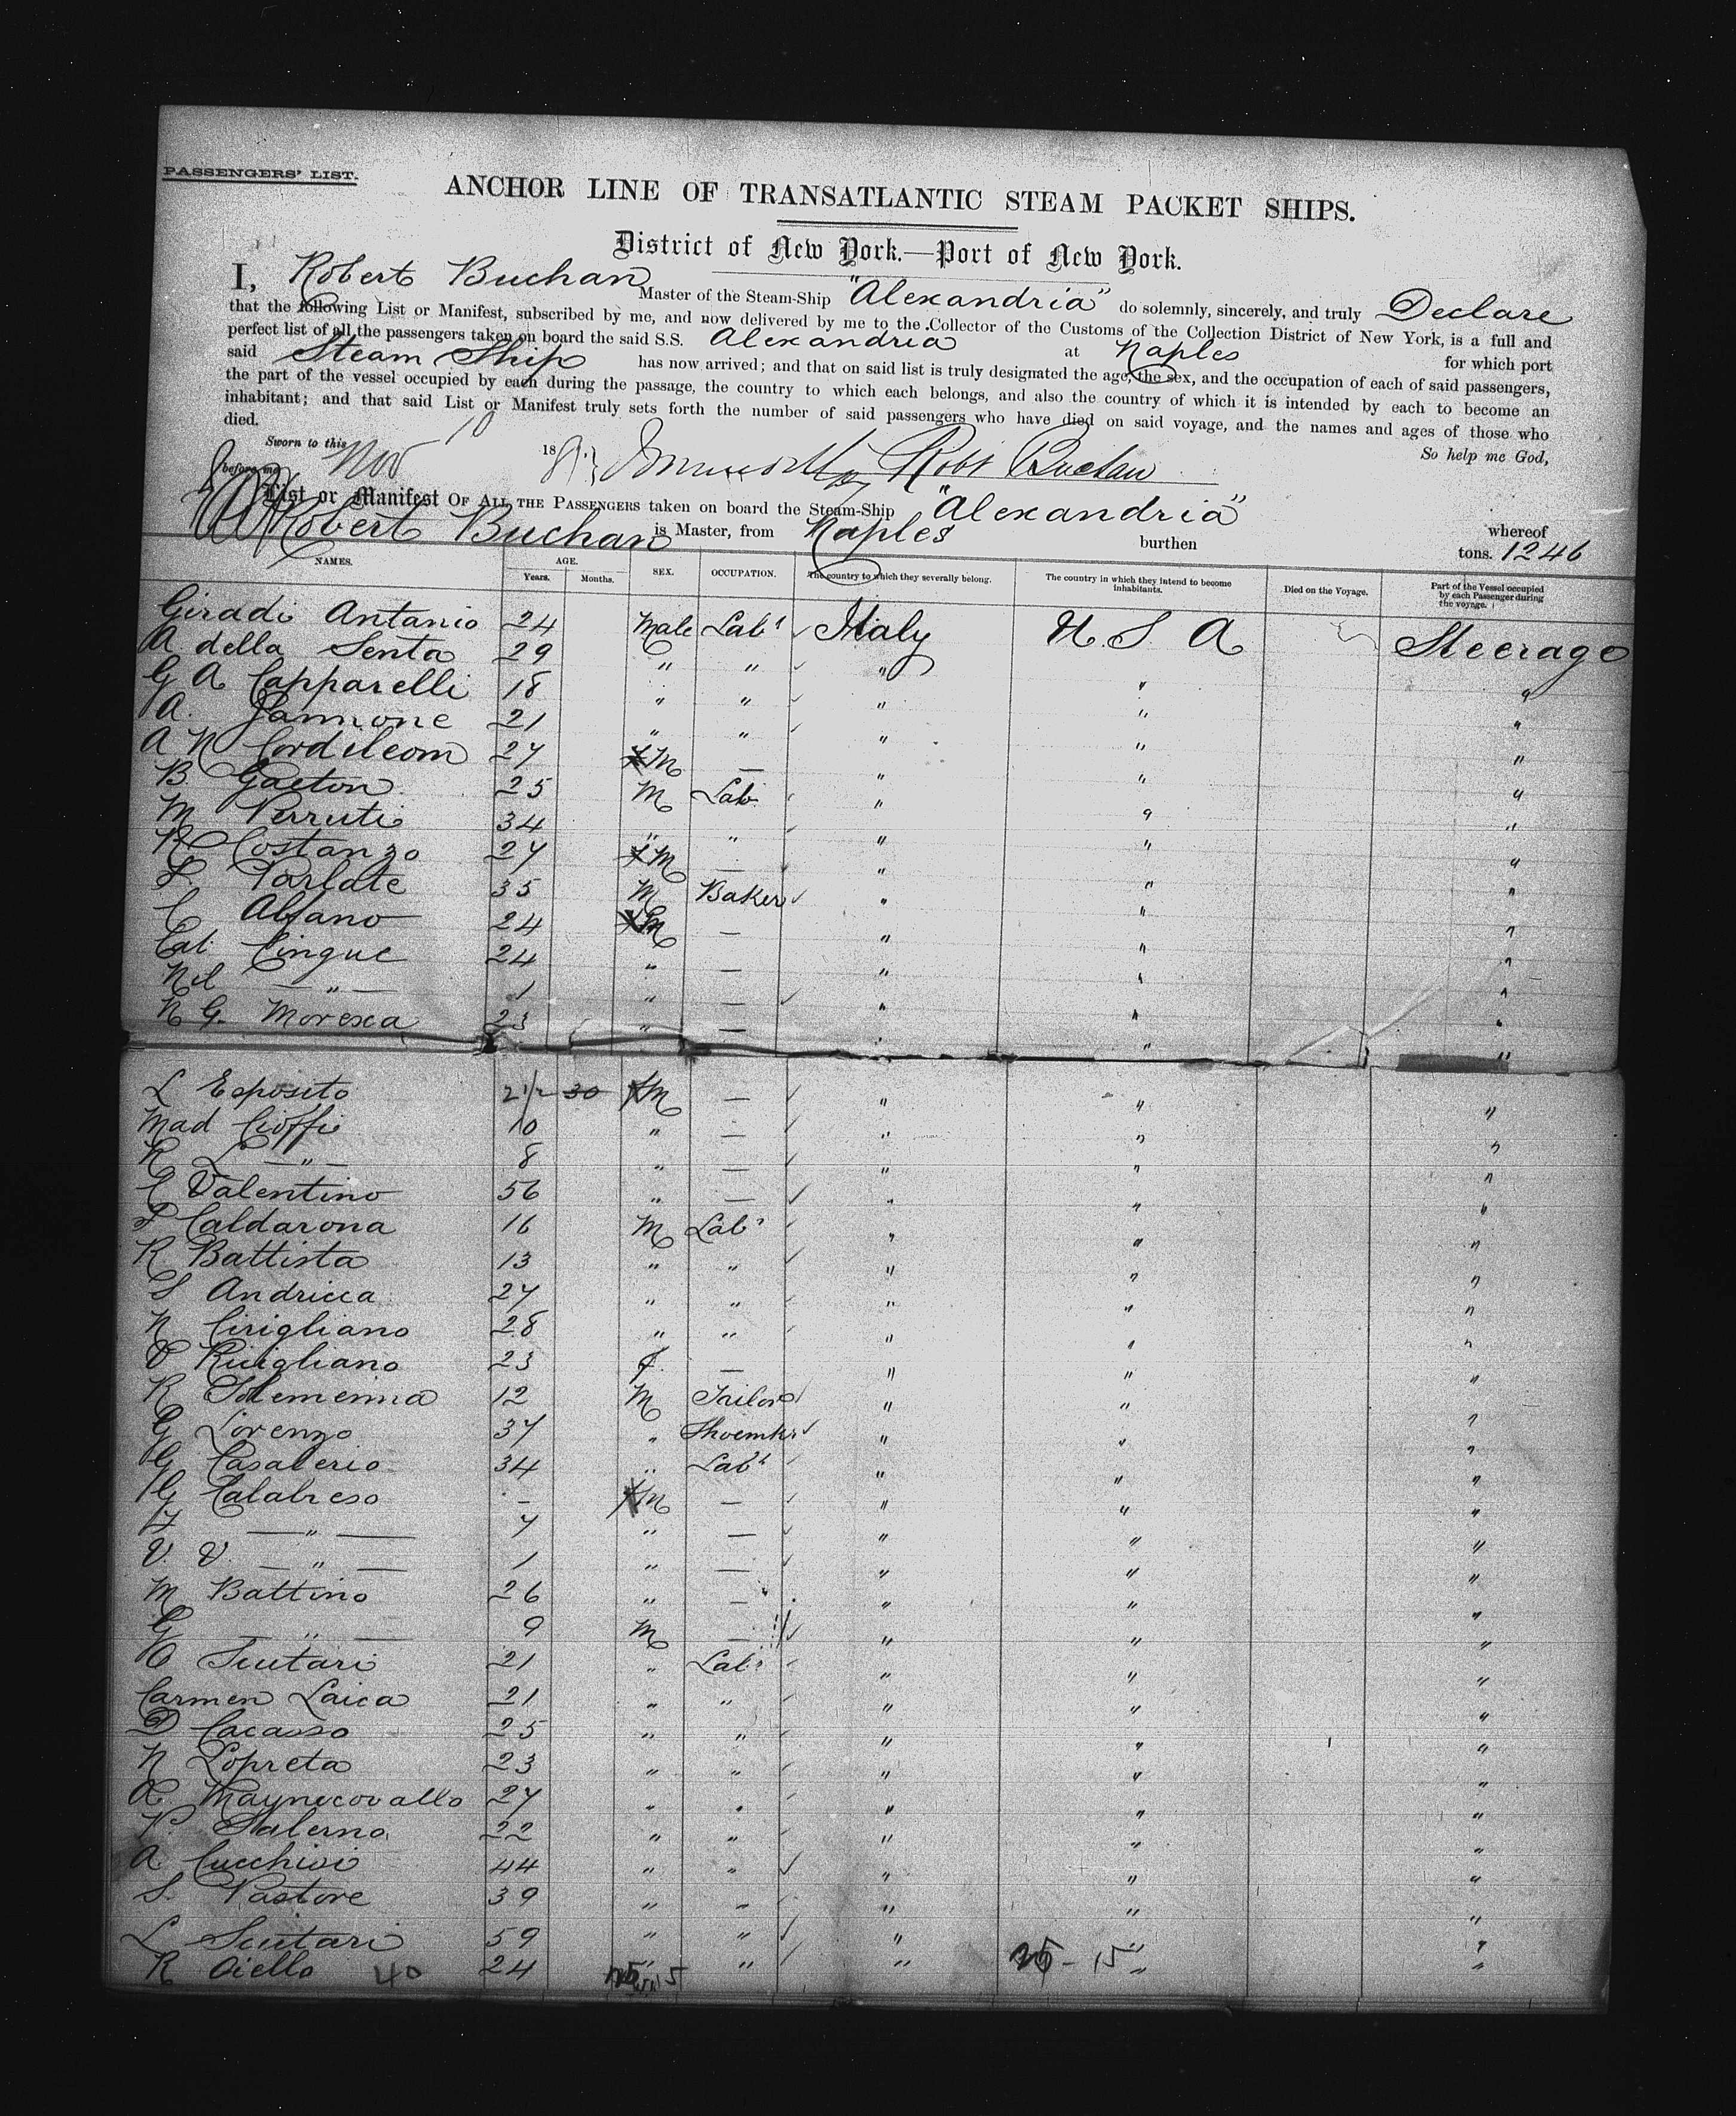 PASSENGERS' LIST.
ANCHOR LINE OF TRANSATLANTIC STEAM PACKET SHIPS.
District of New York.—Port of New York.
I, Robert Buchan Master of the Steam-Ship "Alexandria" do solemnly, sincerely, and truly Declare
that the following List or Manifest, subscribed by me, and now delivered by me to the Collector of the Customs of the Collection District of New York, is a full and
perfect list of all the passengers taken on board the said S.S. Alexandria at Naples for which port
said Steam Ship has now arrived; and that on said list is truly designated the age, the sex, and the occupation of each of said passengers,
the part of the vessel occupied by each during the passage, the country to which each belongs, and also the country of which it is intended by each to become an
inhabitant; and that said List or Manifest truly sets forth the number of said passengers who have died on said voyage, and the names and ages of those who
died. So help me God,
Sworn to this Nov 10 18
before me Robt Buchan
List or Manifest OF ALL THE PASSENGERS taken on board the Steam-Ship "Alexandria" whereof
Robert Buchan is Master, from Naples burthen tons. 1246
NAMES. AGE. Years. Months. SEX. OCCUPATION. The country to which they severally belong. The country in which they intend to become inhabitants. Died on the Voyage. Part of the Vessel occupied by each Passenger during the voyage.
Giradi Antanio 24 Male Labr Italy U. S. A Steerage
A della Senta 29 " " " " "
G A Capparelli 18 " " " " "
A. Jannone 21 " " " " "
A N Cordileom 27 M — " " "
B Gaeton 25 M Lab " " "
M Perruti 34 " " " " "
R Costanzo 27 M — " " "
L. Parlate 35 M Baker " " "
C Alfano 24 M — " " "
Cat. Cinque 24 " — " " "
Nel — " — 1 " — " " "
N G. Moresca 23 " — " " "
L Esposito 2 1/2 30 M — " " "
Mad Cioffi 10 " — " " "
R L — " — 8 " — " " "
Valentino 56 " — " " "
P Caldarona 16 M Labr " " "
R Battista 13 " " " " "
S Andricca 27 " " " " "
N Cirigliano 28 " " " " "
V Ruigliano 23 f. — " " "
R Tolemenna 12 M Tailor " " "
G Lorenzo 37 " Shoemkr " " "
G Casalerio 34 " Labr " " "
G Calabreso — M — " " "
— " — 7 " — " " "
V. V. — " — 1 " — " " "
M Battino 26 " — " " "
G — " — 9 M — " " "
Scutari 21 " Labr " " "
Carmen Laica 21 " " " " "
D Cacasso 25 " " " " "
N Lopreta 23 " " " " "
Maynocovallo 27 " " " " "
Salerno 22 " " " " "
A Cucchisi 44 " " " " "
S. Pastore 39 " " " " "
L Scutari 59 " " " " "
R Aiello 40 24 " " " 25 - 15 " "